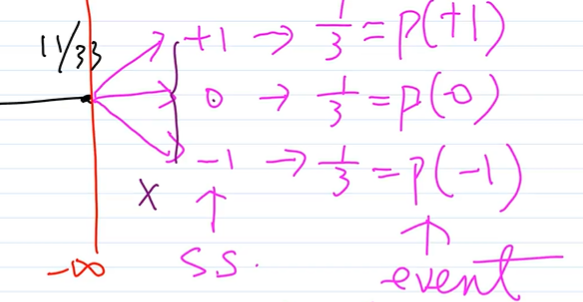 11/33
+1 → 1/3 = p(+1)
0 → 1/3 = p(0)
-1 → 1/3 = p(-1)
X
↑ ↑
-∞ S S . event